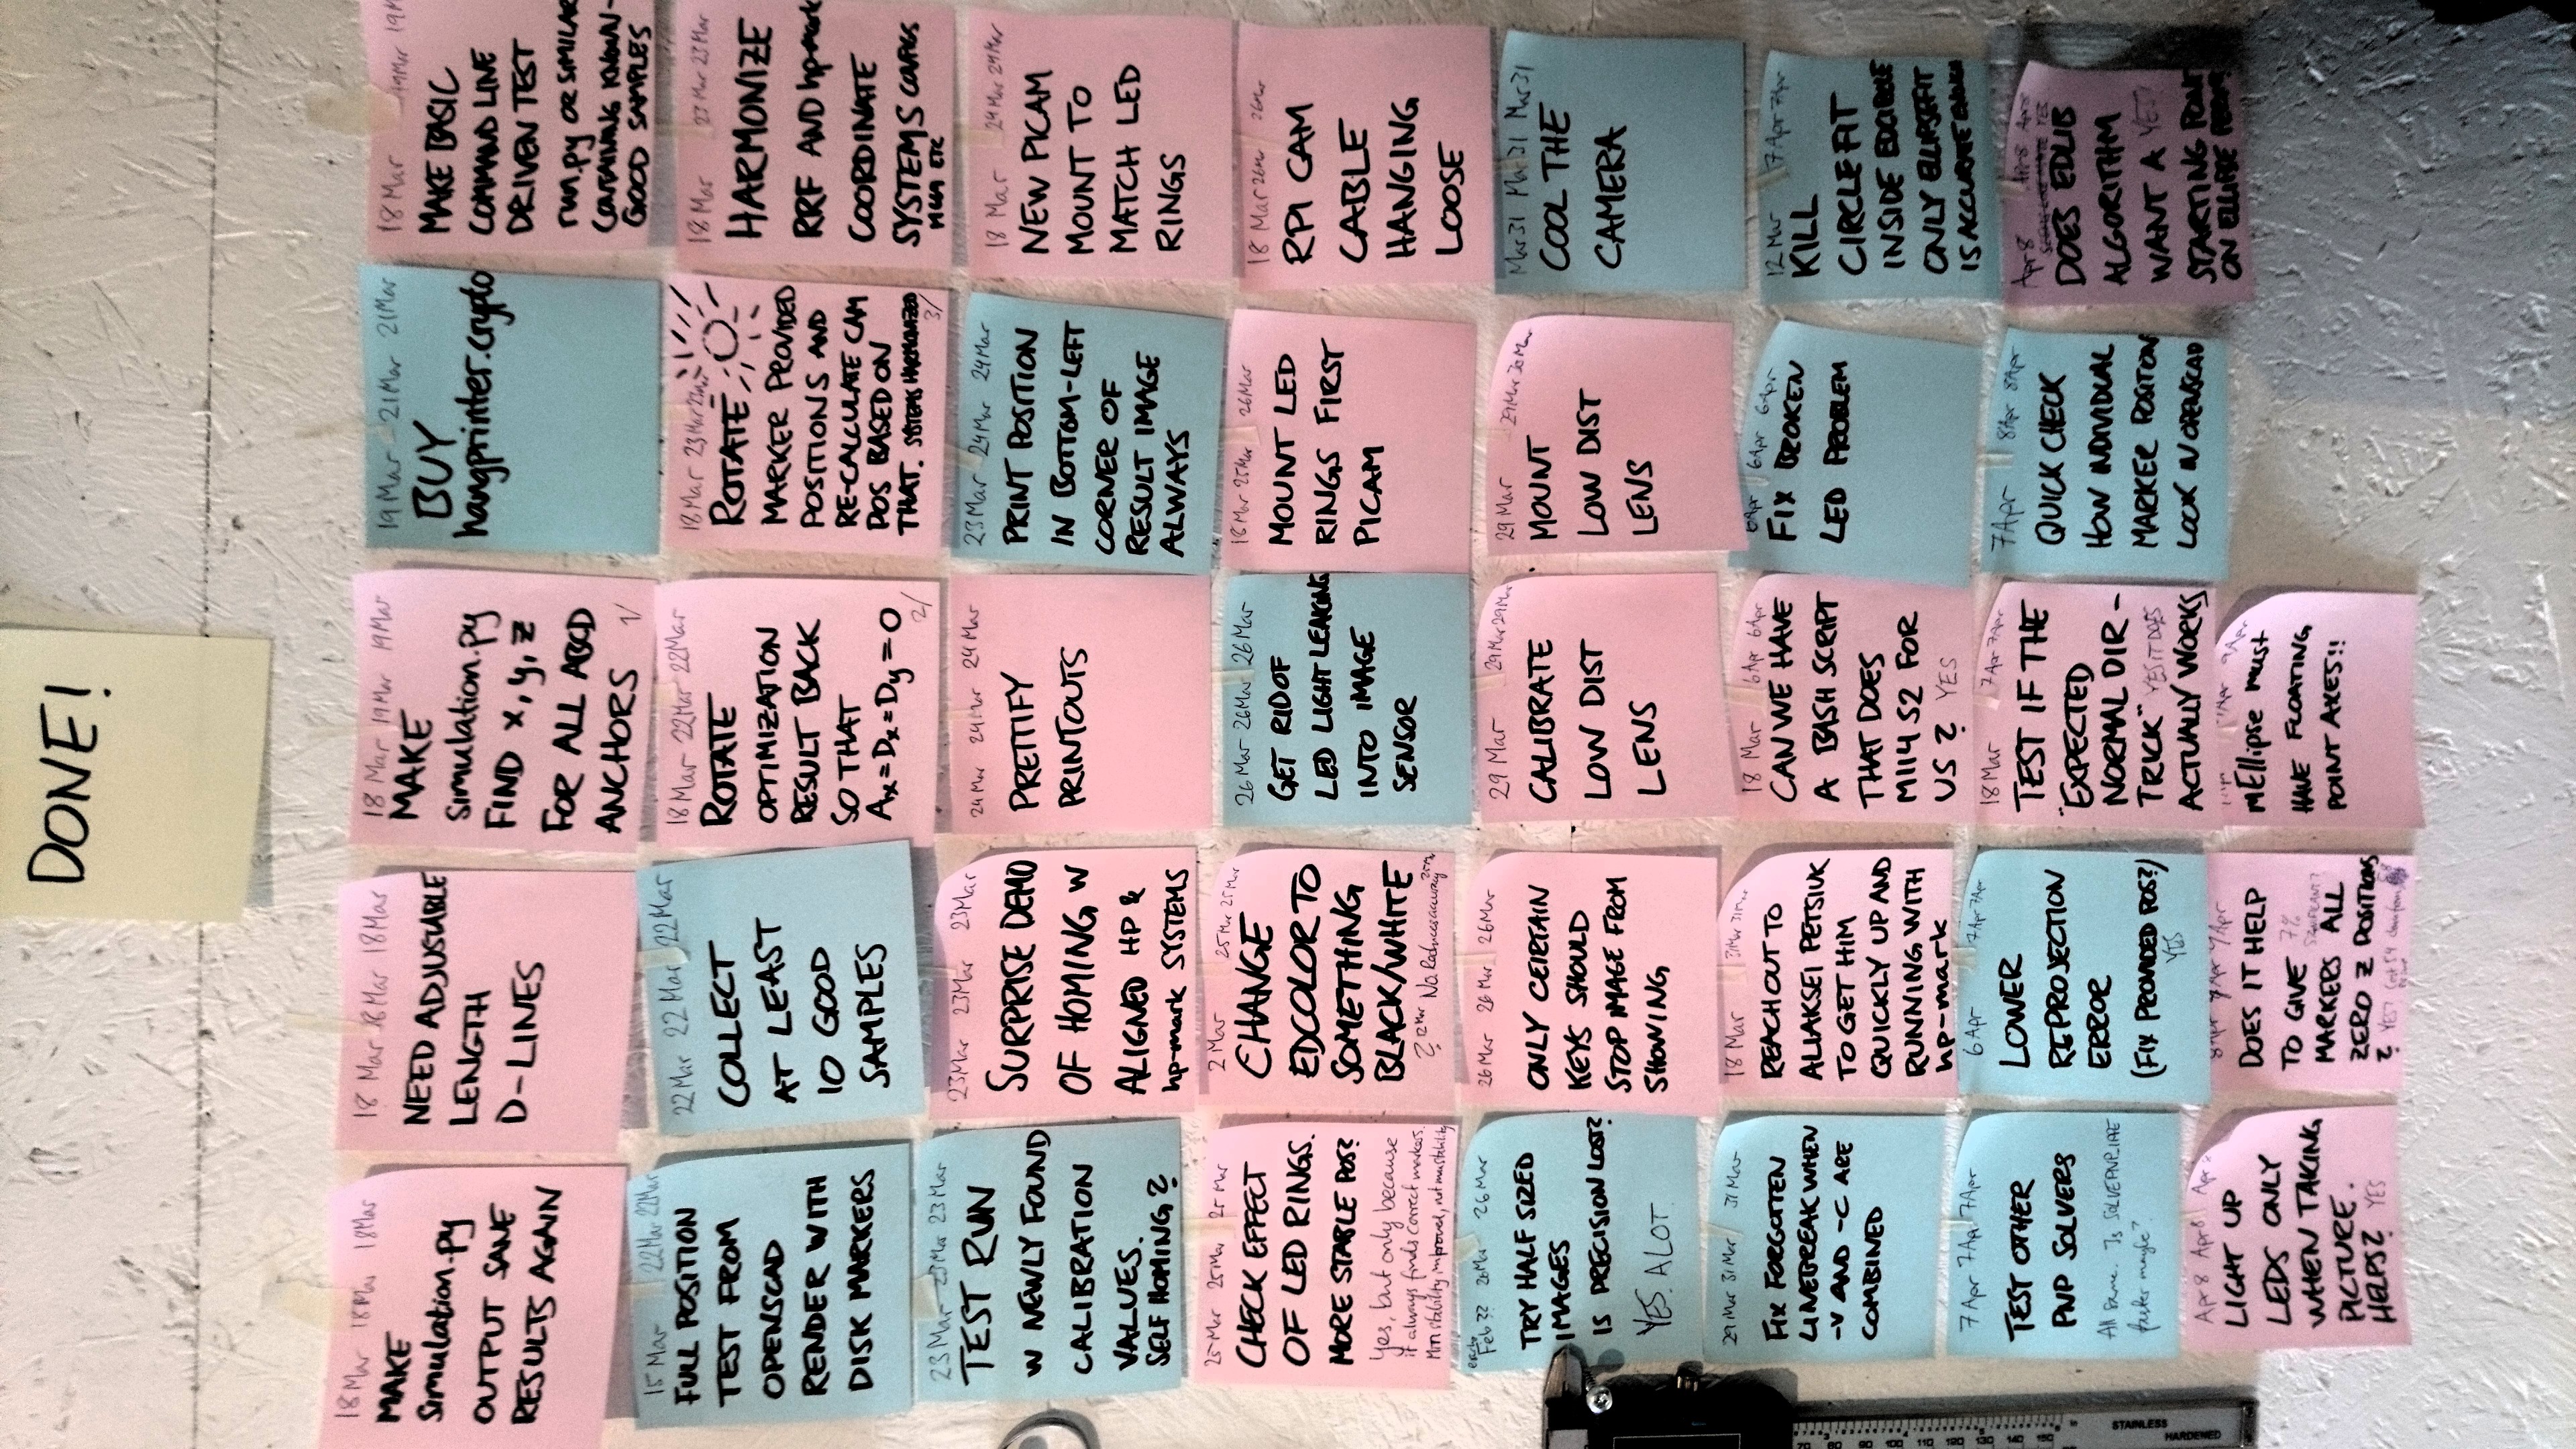 DONE!
18 Mar 18 Mar 18 Mar
MAKE
Simulation.py
OUTPUT SANE
RESULTS AGAIN
18 Mar 18 Mar 18 Mar
NEED ADJUSTABLE
LENGTH
D-LINES
18 Mar 19 Mar 19 Mar
MAKE
simulation.py
FIND x, y, z
FOR ALL ABCD
ANCHORS 1/
19 Mar 21 Mar 21 Mar
BUY
hangprinter.crypto
18 Mar 19 Mar 19 M
MAKE BASIC
COMMAND LINE
DRIVEN TEST
run.py OR SIMILAR
CONTAINING KNOWN-
GOOD SAMPLES
15 Mar 22 Mar 22 Mar
FULL POSITION
TEST FROM
OPENSCAD
RENDER WITH
DISK MARKERS
22 Mar 22 Mar 22 Mar
COLLECT
AT LEAST
10 GOOD
SAMPLES
18 Mar 22 Mar 22 Mar
ROTATE
OPTIMIZATION
RESULT BACK
SO THAT
Ax=Dx=Dy=0
2/
18 Mar 23 Mar 23 Mar
ROTATE
MARKER PROVIDED
POSITIONS AND
RE-CALCULATE CAM
POS BASED ON
THAT. SYSTEMS HARMONIZED
3/
18 Mar 23 Mar 23 Mar
HARMONIZE
RRF AND hp-mark
COORDINATE
SYSTEMS CONFIGS
ETC
23 Mar 23 Mar 23 Mar
TEST RUN
W NEWLY FOUND
CALIBRATION
VALUES.
SELF HOMING?
23 Mar 23 Mar 23 Mar
SURPRISE DEMO
OF HOMING W
ALIGNED HP &
hp-mark SYSTEMS
24 Mar 24 Mar 24 Mar
PRETTIFY
PRINTOUTS
23 Mar 24 Mar 24 Mar
PRINT POSITION
IN BOTTOM-LEFT
CORNER OF
RESULT IMAGE
ALWAYS
18 Mar 24 Mar 24 Mar
NEW PICAM
MOUNT TO
MATCH LED
RINGS
25 Mar 25 Mar 25 Mar
CHECK EFFECT
OF LED RINGS.
MORE STABLE POS?
Yes, but only because
it always finds correct markers.
Min stability improved, not max stability
2 Mar 25 Mar 25 Mar
CHANGE
EDCOLOR TO
SOMETHING
BLACK/WHITE
? 12 Mar No. Reduces accuracy 25 Mar
26 Mar 26 Mar 26 Mar
GET RID OF
LED LIGHT LEAKING
INTO IMAGE
SENSOR
18 Mar 25 Mar 26 Mar
MOUNT LED
RINGS FIRST
PICAM
18 Mar 26 Mar 26 Mar
RPI CAM
CABLE
HANGING
LOOSE
Feb ?? 26 Mar 26 Mar
TRY HALF SIZED
IMAGES
IS PRECISION LOST?
YES. A LOT.
26 Mar 26 Mar 26 Mar
ONLY CERTAIN
KEYS SHOULD
STOP IMAGE FROM
SHOWING
29 Mar 29 Mar 29 Mar
CALIBRATE
LOW DIST
LENS
29 Mar 29 Mar 30 Mar
MOUNT
LOW DIST
LENS
Mar 31 Mar 31 Mar 31
COOL THE
CAMERA
29 Mar 31 Mar 31 Mar
FIX FORGOTTEN
LINEBREAK WHEN
-V AND -C ARE
COMBINED
18 Mar 31 Mar 31 Mar
REACH OUT TO
ALIAKSEI PETSIUK
TO GET HIM
QUICKLY UP AND
RUNNING WITH
hp-mark
18 Mar 6 Apr 6 Apr
CAN WE HAVE
A BASH SCRIPT
THAT DOES
M114 S2 FOR
US? YES
6 Apr 6 Apr 6 Apr
FIX BROKEN
LED PROBLEM
12 Mar 7 Apr 7 Apr
KILL
CIRCLEFIT
INSIDE EDCIRCLE
ONLY ELLIPSEFIT
IS ACCURATE ENOUGH
7 Apr 7 Ap 7 Apr
TEST OTHER
PNP SOLVERS
All same. Is SOLVEPNP_IPPE
faster maybe?
6 Apr 7 Apr 7 Apr
LOWER
REPROJECTION
ERROR
(FIX PROVIDED POS?)
YES
18 Mar 7 Apr 7 Apr
TEST IF THE
"EXPECTED
NORMAL DIR-
TRICK" YES IT DOES
ACTUALLY WORKS
7 Apr 8 Apr 8 Apr
QUICK CHECK
HOW INDIVIDUAL
MARKER POSITION
LOOK IN OPENSCAD
Apr 8 Apr 8 Apr 8
DOES EDLIB
ALGORITHM
WANT A YES!
STARTING POINT
ON ELLIPSE
Apr 8 Apr 8 Apr 8
LIGHT UP
LEDS ONLY
WHEN TAKING
PICTURE.
HELPS? YES
8 Apr 9 Apr 9 Apr
DOES IT HELP
TO GIVE 7%
SIGNIFICANT?
MARKERS ALL
ZERO Z POSITIONS
? YES?
9 Apr
mEllipse must
HAVE FLOATING
POINT AXES!!
STAINLESS
HARDENED